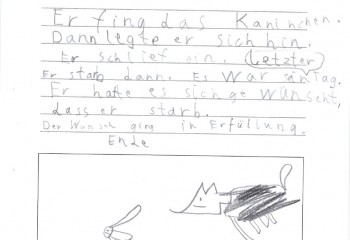 Er fing das Kaninchen.
Dann legte er sich hin.
Er schlief ein. (Letzter)
Er starb dann. Es war ein Tag.
Er hatte es sich gewünscht,
dass er starb.
Der Wunsch ging in Erfüllung.
Ende